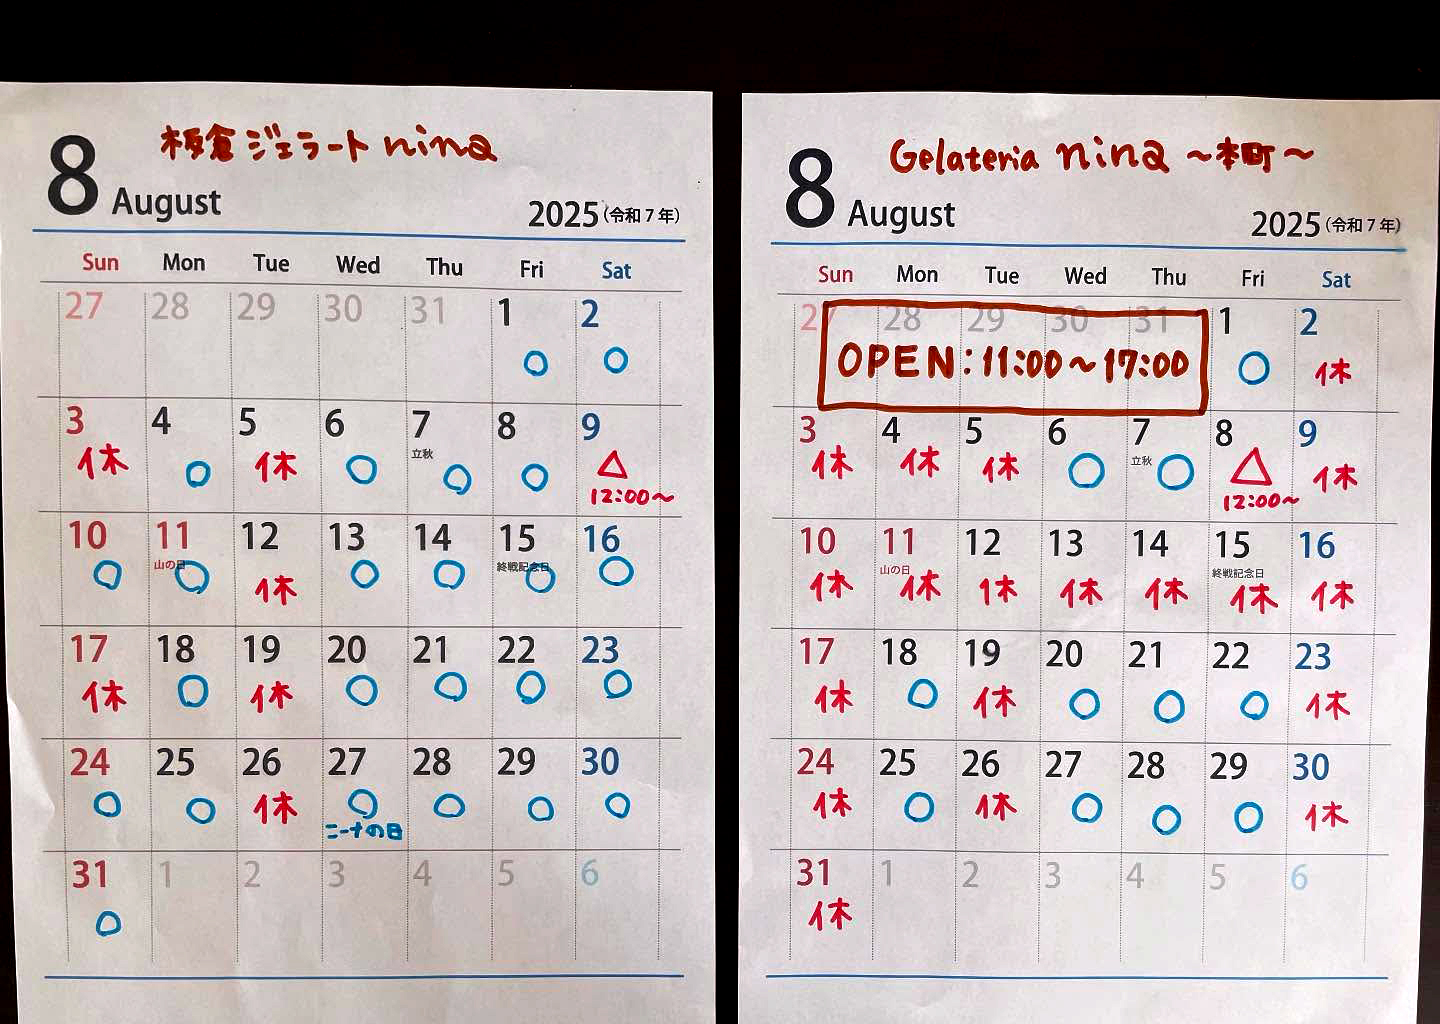 板倉ジェラート nina
8 August 2025(令和7年)
Sun Mon Tue Wed Thu Fri Sat
27 28 29 30 31 1 2
○ ○
3 4 5 6 7 8 9
立秋
休 ○ 休 ○ ○ ○ △
12:00～
10 11 12 13 14 15 16
山の日 終戦記念日
○ ○ 休 ○ ○ ○ ○
17 18 19 20 21 22 23
休 ○ 休 ○ ○ ○ ○
24 25 26 27 28 29 30
○ ○ 休 ○ ○ ○ ○
ニーナの日
31 1 2 3 4 5 6
○
Gelateria nina ～本町～
8 August 2025(令和7年)
Sun Mon Tue Wed Thu Fri Sat
27 28 29 30 31 1 2
OPEN:11:00～17:00
○ 休
3 4 5 6 7 8 9
立秋
休 休 休 ○ ○ △ 休
12:00～
10 11 12 13 14 15 16
山の日 終戦記念日
休 休 休 休 休 休 休
17 18 19 20 21 22 23
休 ○ 休 ○ ○ ○ 休
24 25 26 27 28 29 30
休 ○ 休 ○ ○ ○ 休
31 1 2 3 4 5 6
休